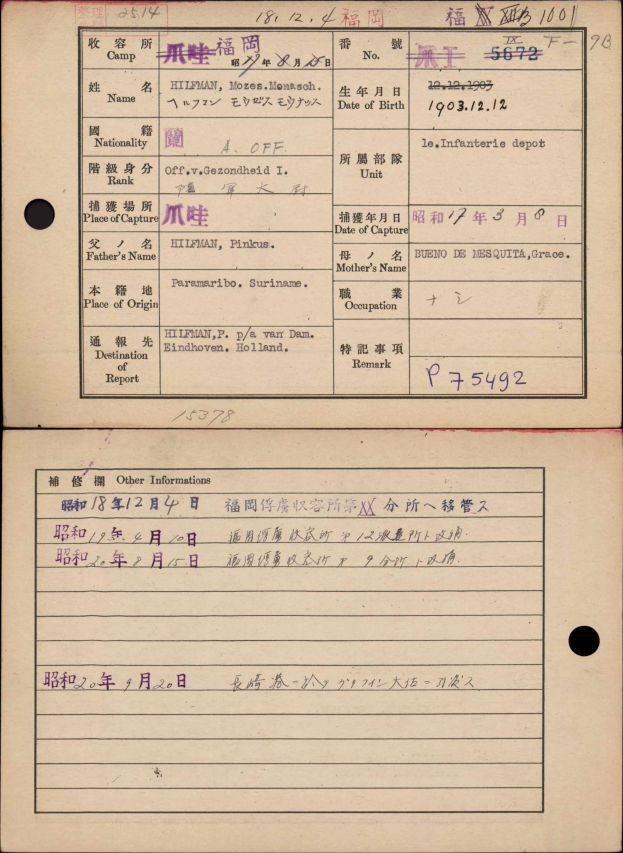 2514 18.12.4 福岡 福 1001
收容所 Camp 爪哇 福岡 昭 年 8 月 15 日
番號 No. 爪I 5672 IX F- 9B
姓名 Name HILFMAN, Mozes.Menasch.
ヘルフマン モウゼス モウナッス
生年月日 Date of Birth 12.12.1903
1903.12.12
國籍 Nationality 蘭 A. OFF.
階級身分 Rank Off.v.Gezondheid I.
陸軍大尉
所屬部隊 Unit 1e.Infanterie depot
捕獲場所 Place of Capture 爪哇
捕獲年月日 Date of Capture 昭和 17 年 3 月 8 日
父ノ名 Father's Name HILFMAN, Pinkus.
母ノ名 Mother's Name BUENO DE MESQUITA,Grace.
本籍地 Place of Origin Paramaribo. Suriname.
職業 Occupation ナシ
通報先 Destination of Report HILFMAN,P. p/a van Dam.
Eindhoven. Holland.
特記事項 Remark
P 75492
15378
補修欄 Other Informations
昭和 18 年 12 月 4 日 福岡俘虜收容所第 XX 分所ヘ移管ス
昭和 19 年 4 月 10 日 福岡俘虜收容所 12 派遣所ト改稱
昭和 20 年 8 月 15 日 福岡俘虜收容所 9 分所ト改稱
昭和 20 年 9 月 20 日 長崎港ニ於テ 大佐ニ引渡ス